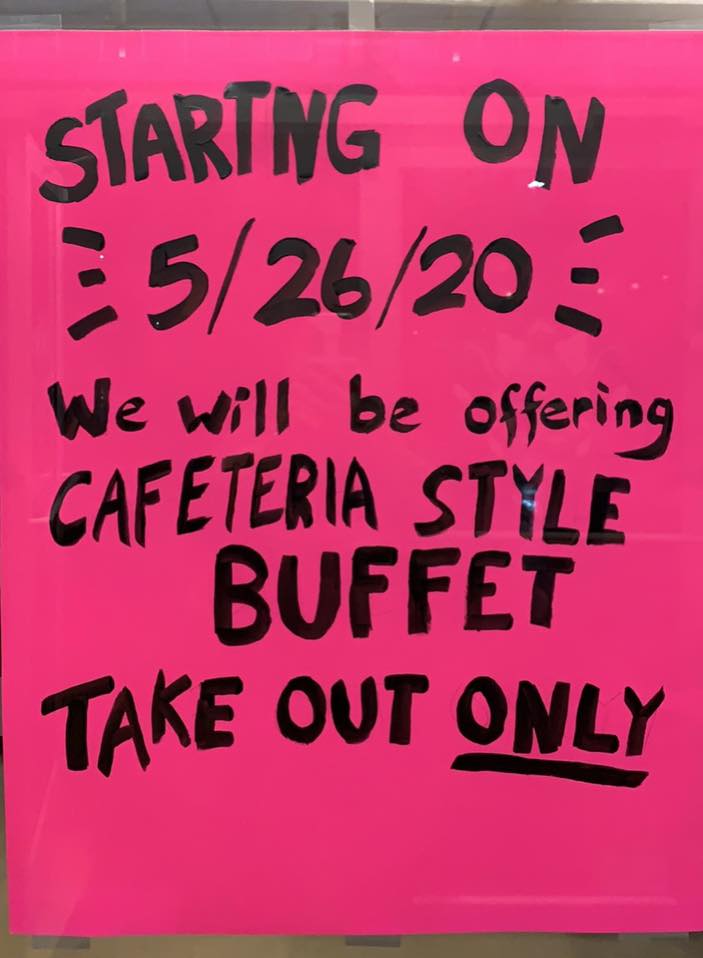 STARTNG ON
5/26/20
We will be offering
CAFETERIA STYLE
BUFFET
TAKE OUT ONLY